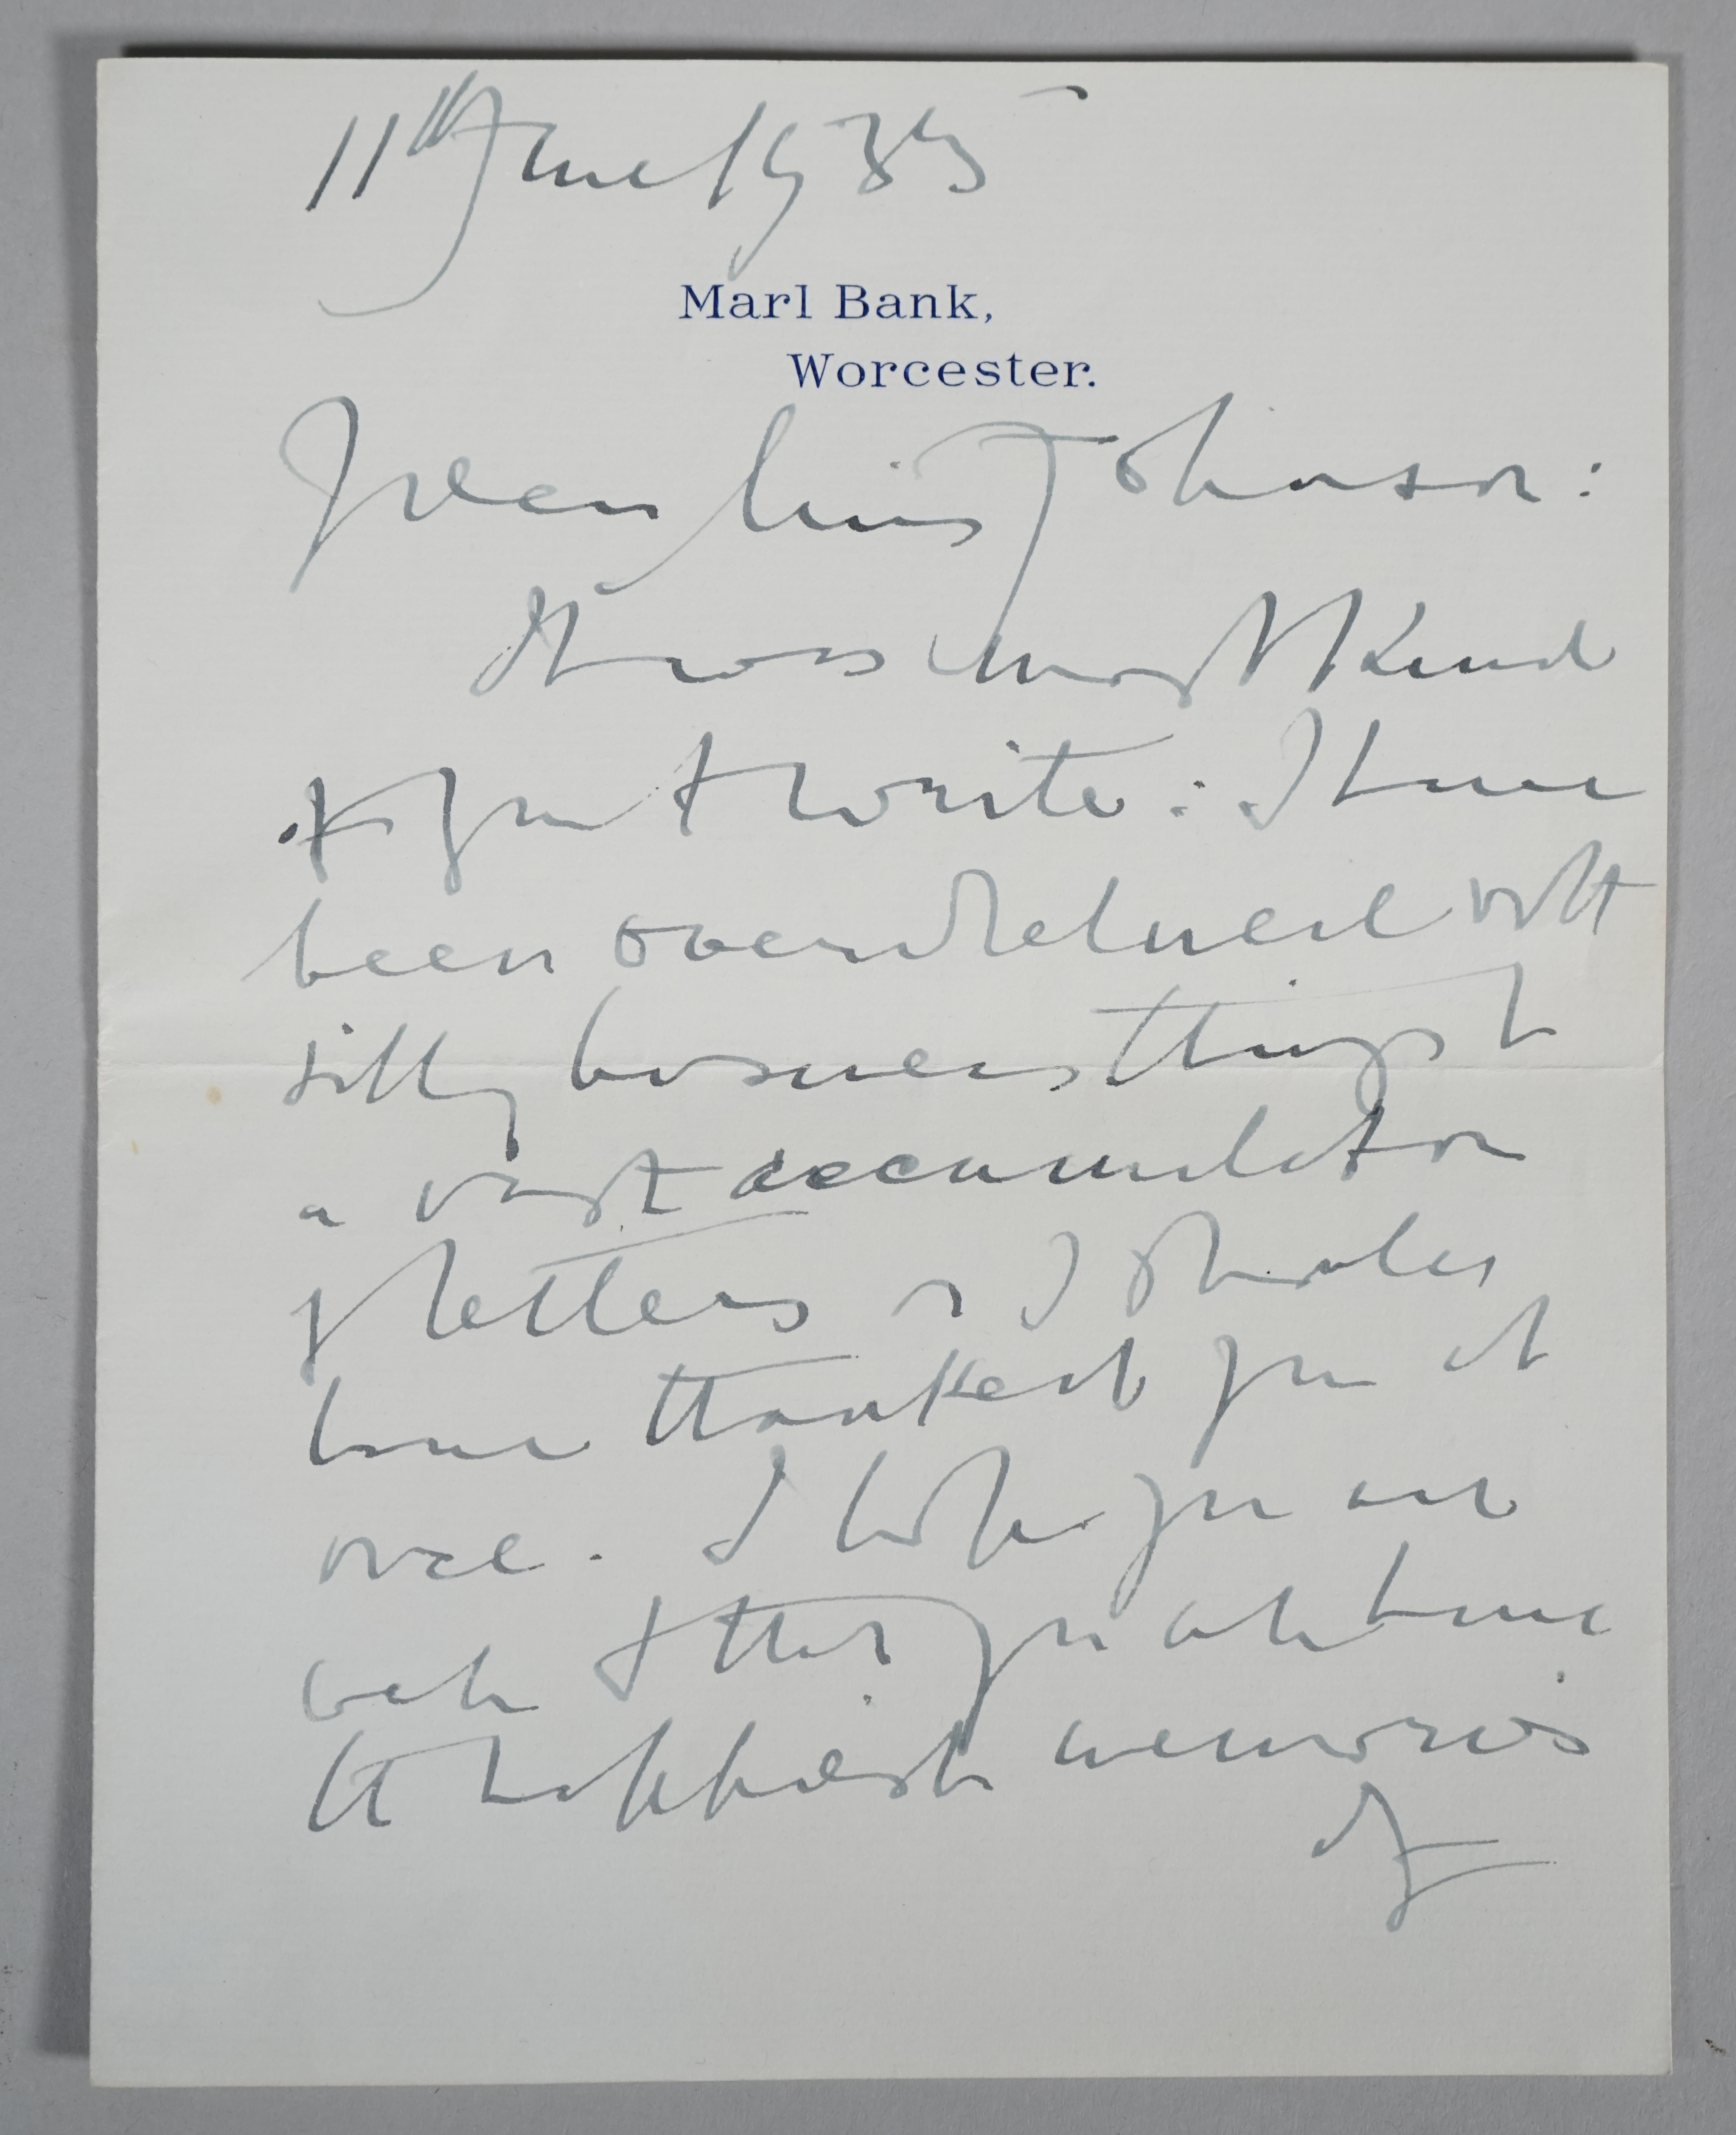 11th June 1933
Marl Bank,
Worcester.
Dear Miss Johnson:
It was most kind
of you to write: I have
been overwhelmed with
silly business things &
a vast accumulation
of letters or I should
have thanked you at
once. I hope you are
well & that you all have
the happiest memories
of